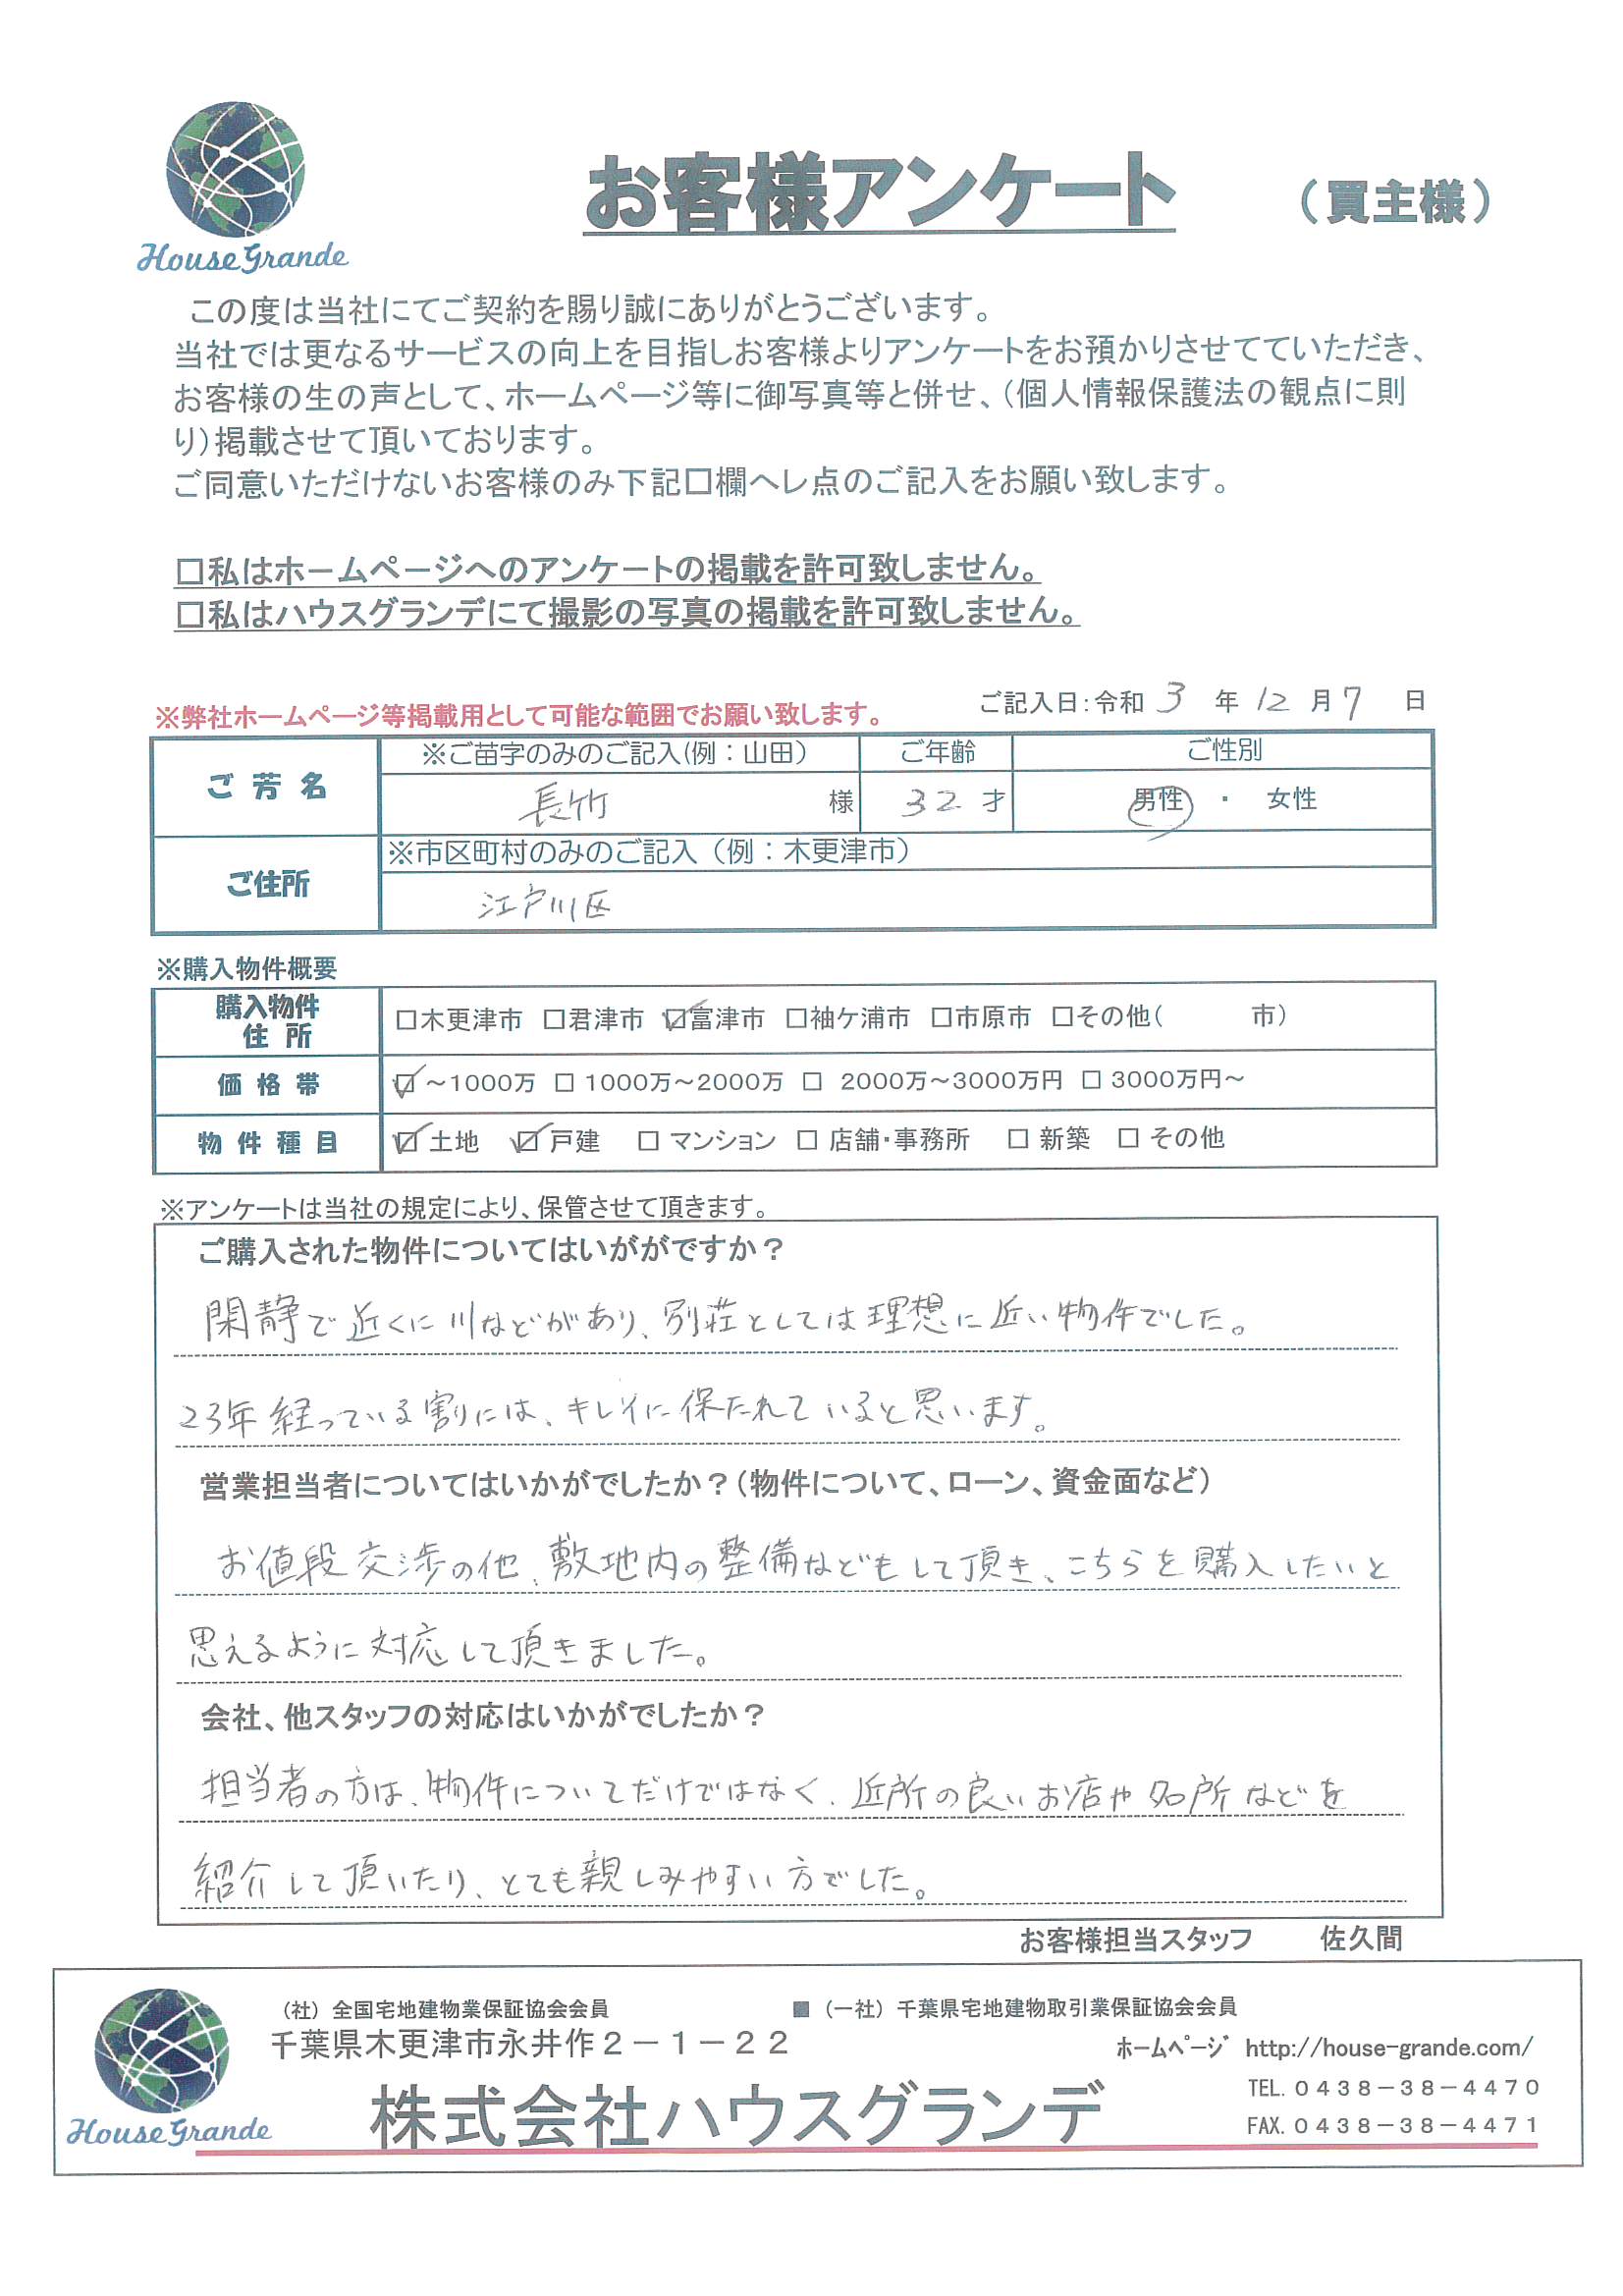 House Grande
お客様アンケート （買主様）
この度は当社にてご契約を賜り誠にありがとうございます。
当社では更なるサービスの向上を目指しお客様よりアンケートをお預かりさせてていただき、
お客様の生の声として、ホームページ等に御写真等と併せ、（個人情報保護法の観点に則
り）掲載させて頂いております。
ご同意いただけないお客様のみ下記口欄へレ点のご記入をお願い致します。
□私はホームページへのアンケートの掲載を許可致しません。
□私はハウスグランデにて撮影の写真の掲載を許可致しません。
※弊社ホームページ等掲載用として可能な範囲でお願い致します。 ご記入日：令和 3 年 12 月 7 日
ご芳名 ※ご苗字のみのご記入(例：山田） ご年齢 ご性別
長竹 様 32 才 男性 ・ 女性
ご住所 ※市区町村のみのご記入（例：木更津市）
江戸川区
※購入物件概要
購入物件住所 □木更津市 □君津市 ☑富津市 □袖ケ浦市 □市原市 □その他（ 市）
価格帯 ☑～1000万 □ 1000万～2000万 □ 2000万～3000万円 □ 3000万円～
物件種目 ☑ 土地 ☑ 戸建 □ マンション □ 店舗・事務所 □ 新築 □ その他
※アンケートは当社の規定により、保管させて頂きます。
ご購入された物件についてはいががですか？
閑静で近くに川などがあり、別荘としては理想に近い物件でした。
23年経っている割には、キレイに保たれていると思います。
営業担当者についてはいかがでしたか？（物件について、ローン、資金面など）
お値段交渉の他、敷地内の整備などもして頂き、こちらを購入したいと
思えるように対応して頂きました。
会社、他スタッフの対応はいかがでしたか？
担当者の方は、物件についてだけではなく、近所の良いお店や名所などを
紹介して頂いたり、とても親しみやすい方でした。
お客様担当スタッフ 佐久間
（社）全国宅地建物業保証協会会員 ■（一社）千葉県宅地建物取引業保証協会会員
千葉県木更津市永井作２－１－２２ ﾎｰﾑﾍﾟｰｼﾞ http://house-grande.com/
House Grande 株式会社ハウスグランデ
TEL. ０４３８－３８－４４７０
FAX. ０４３８－３８－４４７１